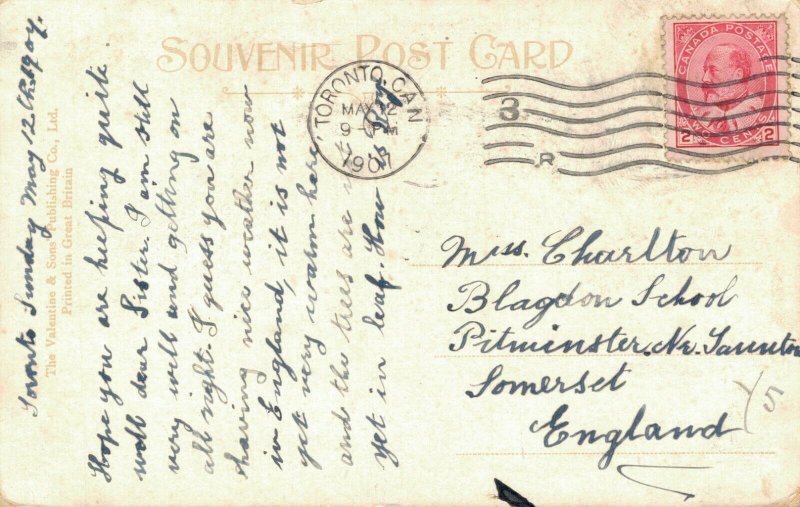 SOUVENIR POST CARD
Toronto Sunday May 12th 1907.
Hope you are keeping quite
well dear Sister. I am still
very well and getting on
all right. I guess you are
having nice weather now
in England, it is not
yet very warm here
and the trees are
yet in leaf. How is
The Valentine & Sons Publishing Co., Ltd.
Printed in Great Britain
TORONTO, CAN
MAY 12
9 PM
1907
3
R
CANADA POSTAGE
2 TWO CENTS 2
Miss. Charlton
Blagdon School
Pitminster. Nr. Taunton
Somerset
England